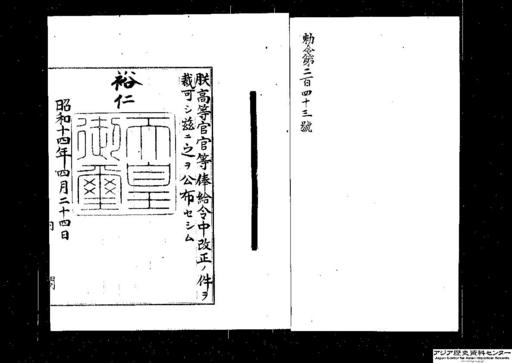 勅令第三百四十三號
朕高等官官等俸給令中改正ノ件ヲ
裁可シ茲ニ之ヲ公布セシム
裕仁
天皇
御璽
昭和十四年四月二十四日
アジア歴史資料センター
Japan Center for Asian Historical Records